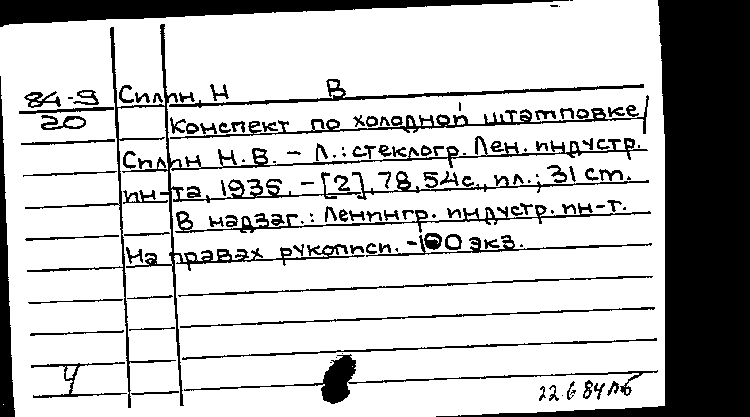 84-9 Силин, Н В
20 Конспект по холодной штамповке/
Силин Н.В. - Л.: стеклогр. Лен. индустр.
ин-та, 1935. - [2], 78, 54с., ил.; 31 cm.
В надзаг.: Ленингр. индустр. ин-т.
На правах рукописи. - 100 экз.
Ч
22 6 84